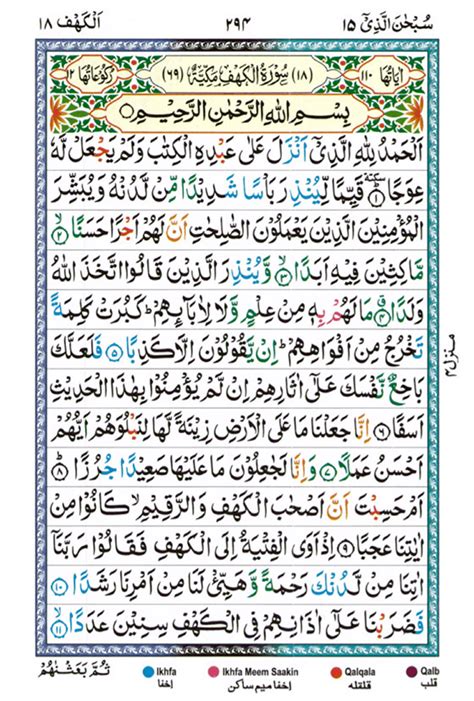 سُبْحٰنَ الَّذِیْۤ ۱۵ ۲۹۴ اَلْكَهْف ۱۸
اٰیَاتُهَا ۱۱۰ (۱۸) سُوْرَةُ الْكَهْفِ مَكِّیَّةٌ (۶۹) رُكُوْعَاتُهَا ۱۲
بِسْمِ اللّٰهِ الرَّحْمٰنِ الرَّحِیْمِ
اَلْحَمْدُ لِلّٰهِ الَّذِیْۤ اَنْزَلَ عَلٰی عَبْدِهِ الْكِتٰبَ وَلَمْ یَجْعَلْ لَّهٗ
عِوَجًا ۱ سكتة قَیِّمًا لِّیُنْذِرَ بَاْسًا شَدِیْدًا مِّنْ لَّدُنْهُ وَیُبَشِّرَ
الْمُؤْمِنِیْنَ الَّذِیْنَ یَعْمَلُوْنَ الصّٰلِحٰتِ اَنَّ لَهُمْ اَجْرًا حَسَنًا ۲
مَّاكِثِیْنَ فِیْهِ اَبَدًا ۳ وَّیُنْذِرَ الَّذِیْنَ قَالُوا اتَّخَذَ اللّٰهُ
وَلَدًا ۴ مَا لَهُمْ بِهٖ مِنْ عِلْمٍ وَّلَا لِاٰبَآىِٕهِمْ ؕ كَبُرَتْ كَلِمَةً
تَخْرُجُ مِنْ اَفْوَاهِهِمْ ؕ اِنْ یَّقُوْلُوْنَ اِلَّا كَذِبًا ۵ فَلَعَلَّكَ
بَاخِعٌ نَّفْسَكَ عَلٰۤی اٰثَارِهِمْ اِنْ لَّمْ یُؤْمِنُوْا بِهٰذَا الْحَدِیْثِ
اَسَفًا ۶ اِنَّا جَعَلْنَا مَا عَلَی الْاَرْضِ زِیْنَةً لَّهَا لِنَبْلُوَهُمْ اَیُّهُمْ
اَحْسَنُ عَمَلًا ۷ وَاِنَّا لَجٰعِلُوْنَ مَا عَلَیْهَا صَعِیْدًا جُرُزًا ۸
اَمْ حَسِبْتَ اَنَّ اَصْحٰبَ الْكَهْفِ وَالرَّقِیْمِ ۙ كَانُوْا مِنْ
اٰیٰتِنَا عَجَبًا ۹ اِذْ اَوَی الْفِتْیَةُ اِلَی الْكَهْفِ فَقَالُوْا رَبَّنَاۤ
اٰتِنَا مِنْ لَّدُنْكَ رَحْمَةً وَّهَیِّئْ لَنَا مِنْ اَمْرِنَا رَشَدًا ۱۰
فَضَرَبْنَا عَلٰۤی اٰذَانِهِمْ فِی الْكَهْفِ سِنِیْنَ عَدَدًا ۱۱
منزل ۴
ثُمَّ بَعَثْنٰهُمْ
Ikhfa Ikhfa Meem Saakin Qalqala Qalb
اخفا اخفا میم ساکن قلقله قلب